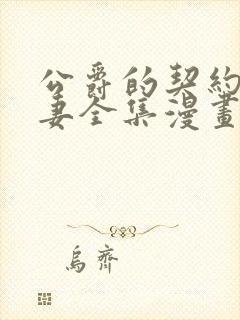 公爵的契約
妻全集漫畫
烏齊